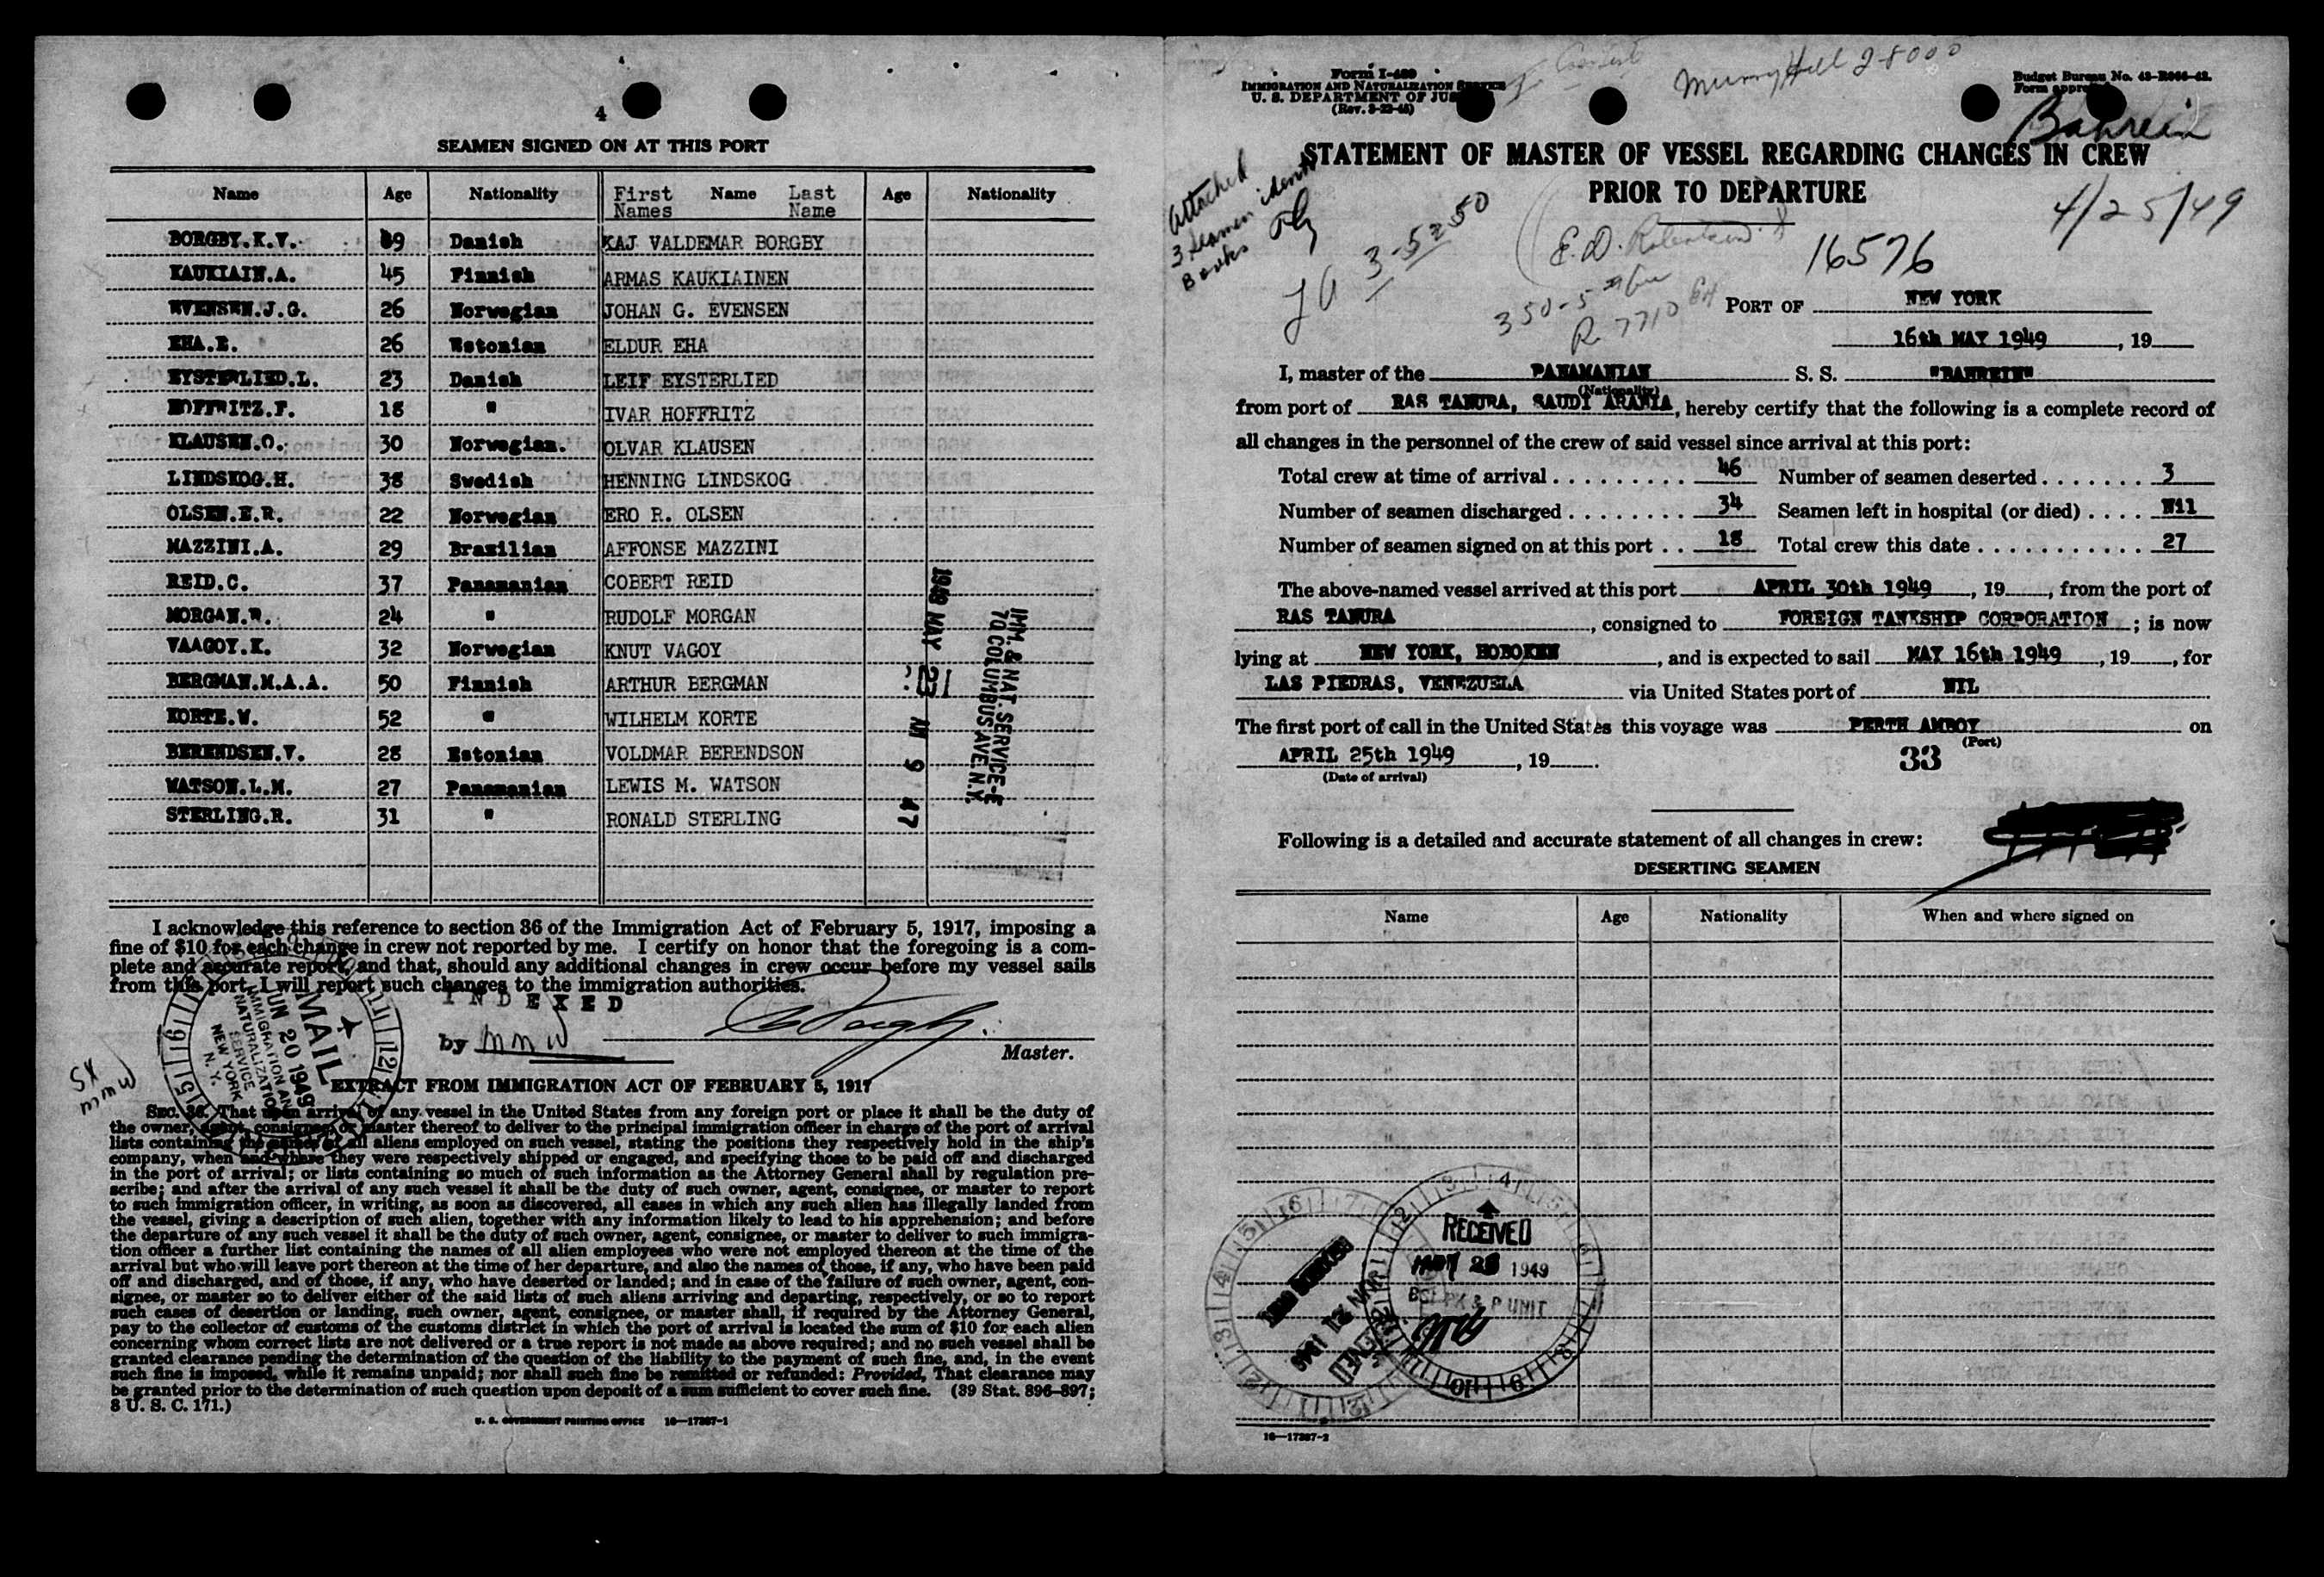 4
SEAMEN SIGNED ON AT THIS PORT
Name Age Nationality First Names Name Last Name Age Nationality
BORGBY.K.V. 39 Danish KAJ VALDEMAR BORGBY
KAUKIAIN.A. 45 Finnish ARMAS KAUKIAINEN
EVENSEN.J.G. 26 Norwegian JOHAN G. EVENSEN
EHA.E. 26 Estonian ELDUR EHA
EYSTERLIED.L. 23 Danish LEIF EYSTERLIED
HOFFRITZ.F. 18 " IVAR HOFFRITZ
KLAUSEN.O. 30 Norwegian. OLVAR KLAUSEN
LINDSKOG.H. 38 Swedish HENNING LINDSKOG
OLSEN.E.R. 22 Norwegian ERO R. OLSEN
MAZZINI.A. 29 Brazilian AFFONSE MAZZINI
REID.C. 37 Panamanian COBERT REID
MORGAN.R. 24 " RUDOLF MORGAN
VAAGOY.K. 32 Norwegian KNUT VAGOY
BERGMAN.M.A.A. 50 Finnish ARTHUR BERGMAN
KORTE.W. 52 " WILHELM KORTE
BERENDSEN.V. 28 Estonian VOLDMAR BERENDSON
WATSON.L.M. 27 Panamanian LEWIS M. WATSON
STERLING.R. 31 " RONALD STERLING
1949 MAY 9 47
IMM. & NAT. SERVICE-E
70 COLUMBUS AVE. N.Y.
I acknowledge this reference to section 36 of the Immigration Act of February 5, 1917, imposing a
fine of $10 for each change in crew not reported by me. I certify on honor that the foregoing is a com-
plete and accurate report, and that, should any additional changes in crew occur before my vessel sails
from this port, I will report such changes to the immigration authorities.
INDEXED
by MMW
Master.
MAIL
JUN 20 1949
IMMIGRATION AND
NATURALIZATION
SERVICE
NEW YORK
N. Y.
EXTRACT FROM IMMIGRATION ACT OF FEBRUARY 5, 1917
SEC. 36. That upon arrival of any vessel in the United States from any foreign port or place it shall be the duty of
the owner, agent, consignee, or master thereof to deliver to the principal immigration officer in charge of the port of arrival
lists containing the names of all aliens employed on such vessel, stating the positions they respectively hold in the ship's
company, when and where they were respectively shipped or engaged, and specifying those to be paid off and discharged
in the port of arrival; or lists containing so much of such information as the Attorney General shall by regulation pre-
scribe; and after the arrival of any such vessel it shall be the duty of such owner, agent, consignee, or master to report
to such immigration officer, in writing, as soon as discovered, all cases in which any such alien has illegally landed from
the vessel, giving a description of such alien, together with any information likely to lead to his apprehension; and before
the departure of any such vessel it shall be the duty of such owner, agent, consignee, or master to deliver to such immigra-
tion officer a further list containing the names of all alien employees who were not employed thereon at the time of the
arrival but who will leave port thereon at the time of her departure, and also the names of those, if any, who have been paid
off and discharged, and of those, if any, who have deserted or landed; and in case of the failure of such owner, agent, con-
signee, or master so to deliver either of the said lists of such aliens arriving and departing, respectively, or so to report
such cases of desertion or landing, such owner, agent, consignee, or master shall, if required by the Attorney General,
pay to the collector of customs of the customs district in which the port of arrival is located the sum of $10 for each alien
concerning whom correct lists are not delivered or a true report is not made as above required; and no such vessel shall be
granted clearance pending the determination of the question of the liability to the payment of such fine, and, in the event
such fine is imposed, while it remains unpaid; nor shall such fine be remitted or refunded: Provided, That clearance may
be granted prior to the determination of such question upon deposit of a sum sufficient to cover such fine. (39 Stat. 896-897;
8 U. S. C. 171.)
U. S. GOVERNMENT PRINTING OFFICE 16—17267-1
Form I-489
IMMIGRATION AND NATURALIZATION SERVICE
U. S. DEPARTMENT OF JUS
(Rev. 3-22-46)
Murray Hill 2-8000
Budget Bureau No. 43-R066-42.
Form appro
Bahrein
STATEMENT OF MASTER OF VESSEL REGARDING CHANGES IN CREW
PRIOR TO DEPARTURE
Attached
3 Seamen idents
Books
4/25/49
16576
PORT OF NEW YORK
16th MAY 1949, 19
I, master of the PANAMANIAN S. S. "BAHREIN"
(Nationality)
from port of RAS TANURA, SAUDI ARABIA, hereby certify that the following is a complete record of
all changes in the personnel of the crew of said vessel since arrival at this port:
Total crew at time of arrival 46 Number of seamen deserted 3
Number of seamen discharged 34 Seamen left in hospital (or died) Nil
Number of seamen signed on at this port 18 Total crew this date 27
The above-named vessel arrived at this port APRIL 30th 1949, 19, from the port of
RAS TANURA, consigned to FOREIGN TANKSHIP CORPORATION; is now
lying at NEW YORK, HOBOKEN, and is expected to sail MAY 16th 1949, 19, for
LAS PIEDRAS, VENEZUELA via United States port of NIL
The first port of call in the United States this voyage was PERTH AMBOY on
(Port)
APRIL 25th 1949, 19.
(Date of arrival)
33
Following is a detailed and accurate statement of all changes in crew:
DESERTING SEAMEN
Name Age Nationality When and where signed on
RECEIVED
MAY 23 1949
16—17267-2